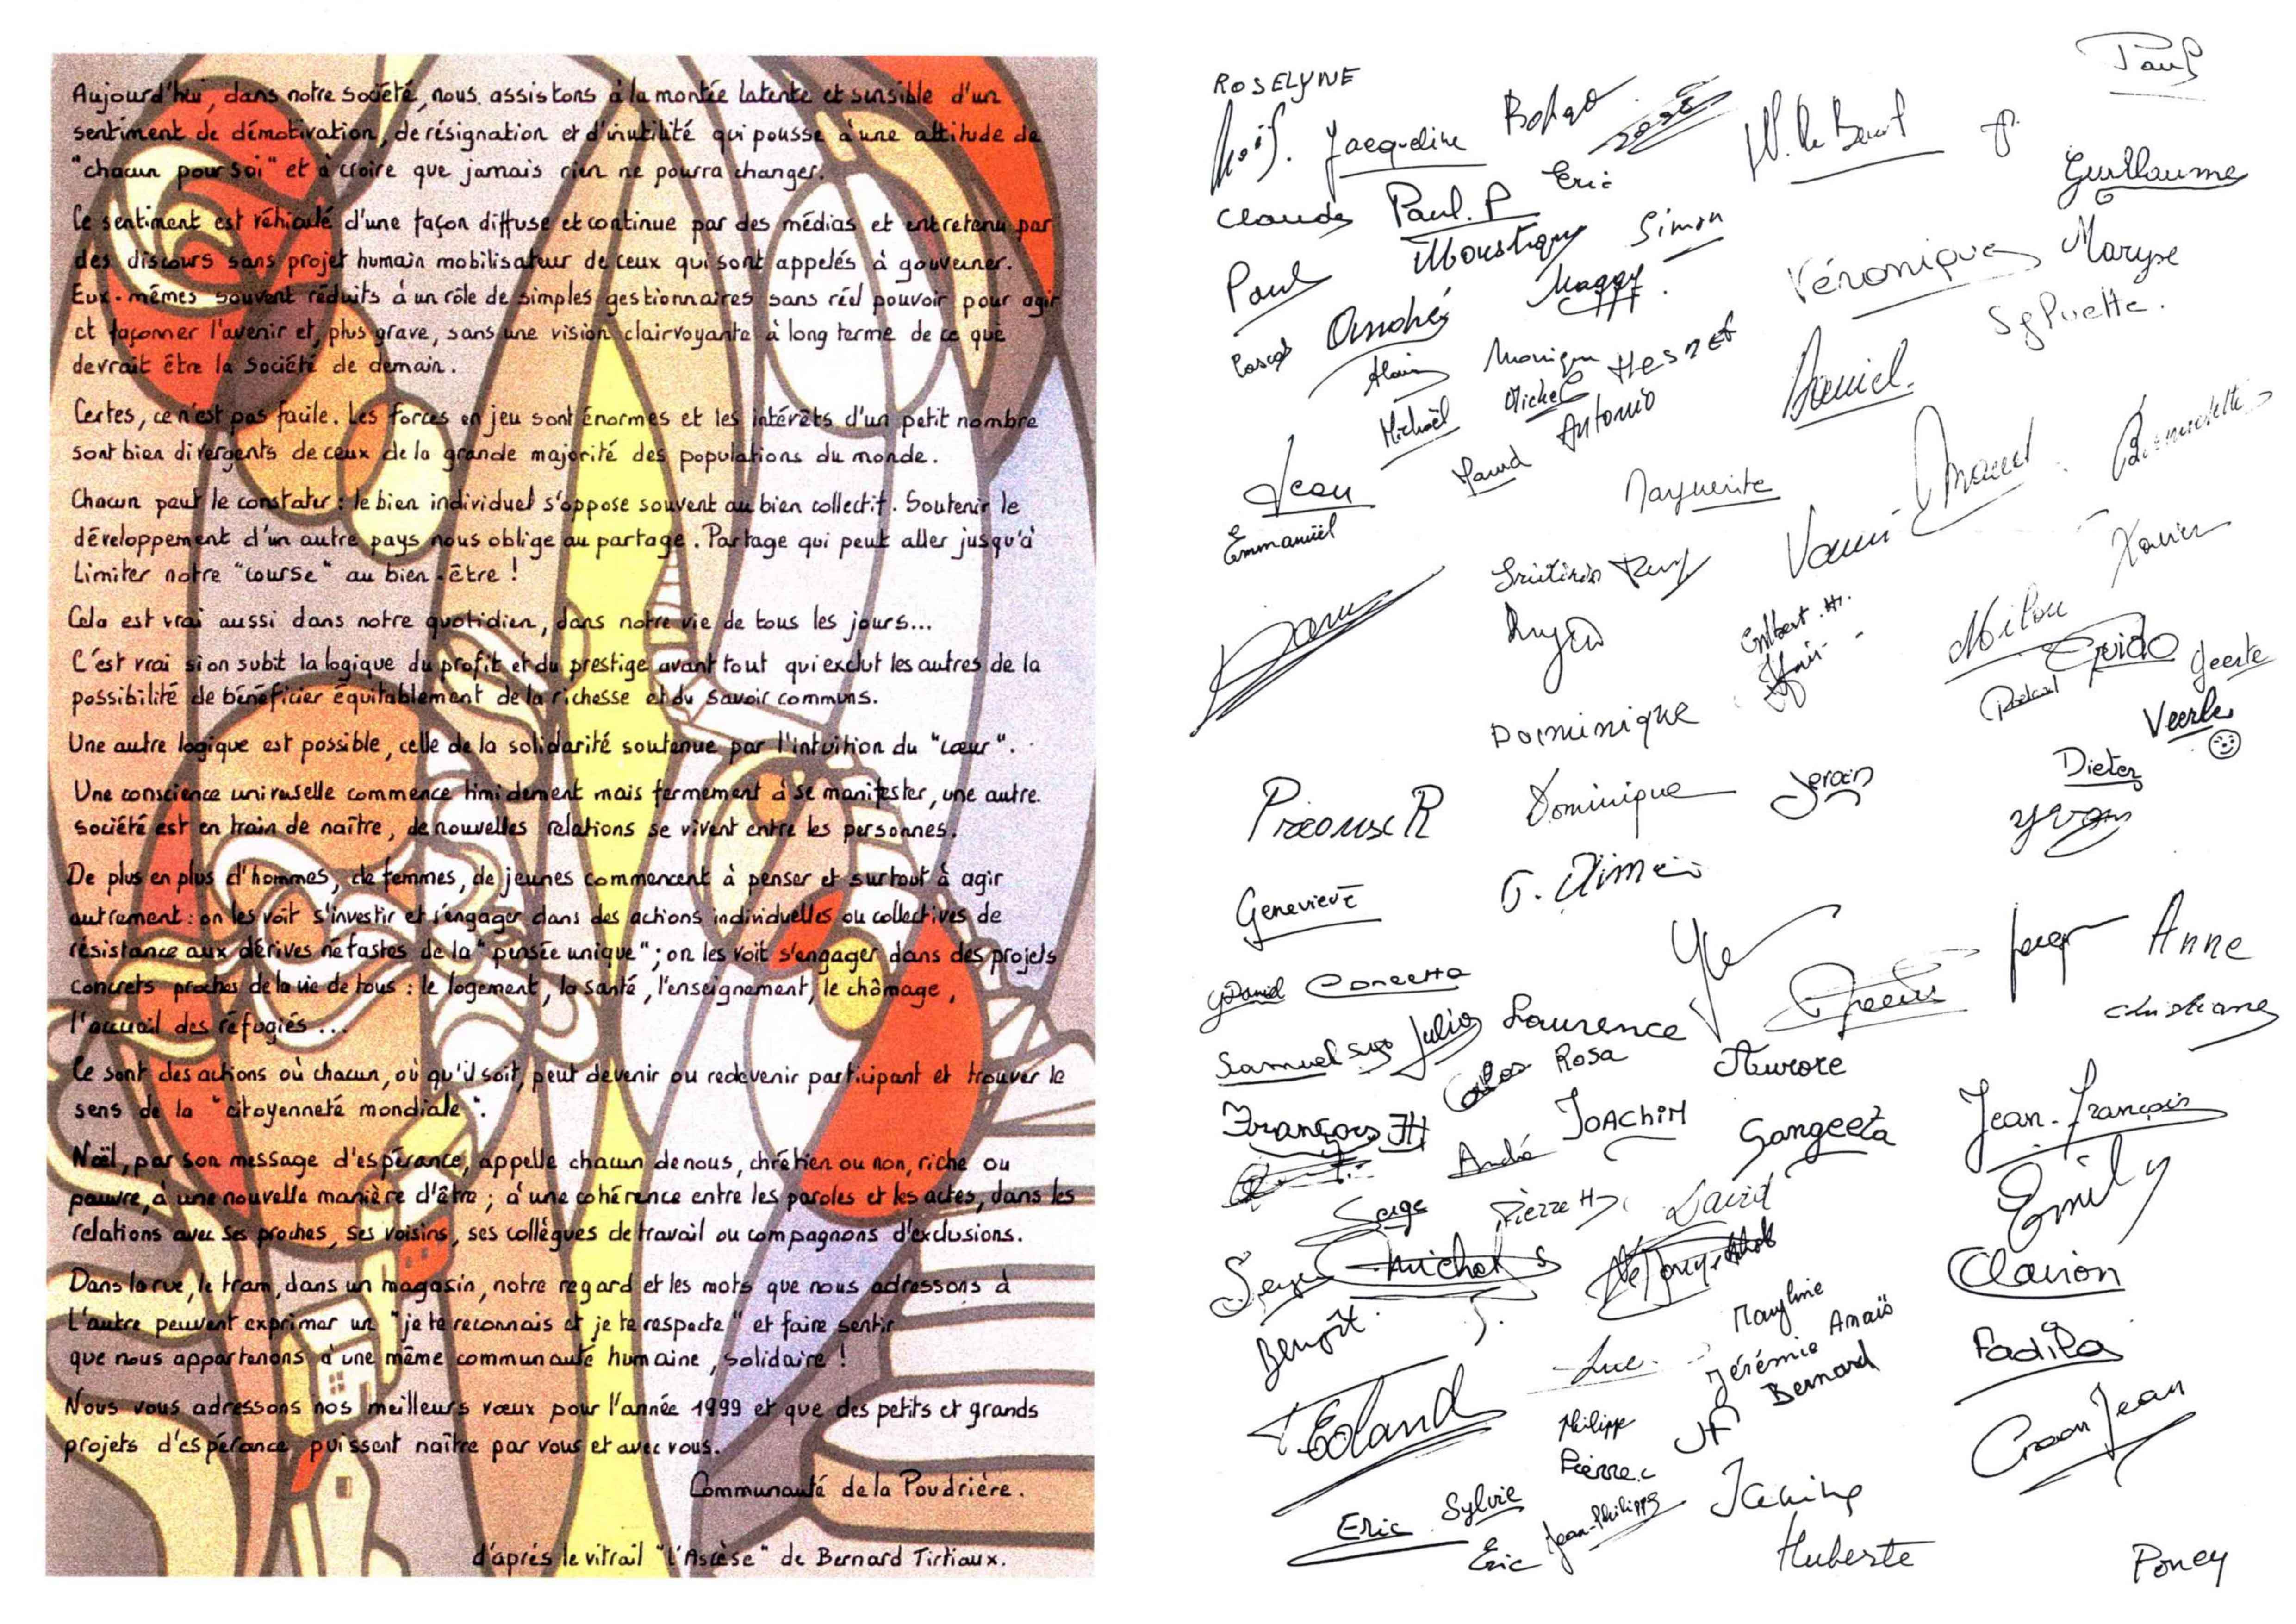 Aujourd'hui, dans notre société, nous assistons à la montée latente et sensible d'un
sentiment de démotivation, de résignation et d'inutilité qui pousse à une attitude de
"chacun pour soi" et à croire que jamais rien ne pourra changer.
Ce sentiment est véhiculé d'une façon diffuse et continue par des médias et entretenu par
des discours sans projet humain mobilisateur de ceux qui sont appelés à gouverner.
Eux-mêmes souvent réduits à un rôle de simples gestionnaires sans réel pouvoir pour agir
et façonner l'avenir et, plus grave, sans une vision clairvoyante à long terme de ce que
devrait être la Société de demain.
Certes, ce n'est pas facile. Les forces en jeu sont énormes et les intérêts d'un petit nombre
sont bien divergents de ceux de la grande majorité des populations du monde.
Chacun peut le constater : le bien individuel s'oppose souvent au bien collectif. Soutenir le
développement d'un autre pays nous oblige au partage. Partage qui peut aller jusqu'à
Limiter notre "course" au bien-être !
Cela est vrai aussi dans notre quotidien, dans notre vie de tous les jours...
C'est vrai si on subit la logique du profit et du prestige avant tout qui exclut les autres de la
possibilité de bénéficier équitablement de la richesse et du savoir communs.
Une autre logique est possible, celle de la solidarité soutenue par l'intuition du "cœur".
Une conscience universelle commence timidement mais fermement à se manifester, une autre
société est en train de naître, de nouvelles relations se vivent entre les personnes.
De plus en plus d'hommes, de femmes, de jeunes commencent à penser et surtout à agir
autrement : on les voit s'investir et s'engager dans des actions individuelles ou collectives de
résistance aux dérives néfastes de la "pensée unique" ; on les voit s'engager dans des projets
concrets proches de la vie de tous : le logement, la santé, l'enseignement, le chômage,
l'accueil des réfugiés ...
Ce sont des actions où chacun, où qu'il soit, peut devenir ou redevenir participant et trouver le
sens de la "citoyenneté mondiale".
Noël, par son message d'espérance, appelle chacun de nous, chrétien ou non, riche ou
pauvre, à une nouvelle manière d'être ; à une cohérence entre les paroles et les actes, dans les
relations avec ses proches, ses voisins, ses collègues de travail ou compagnons d'exclusions.
Dans la rue, le tram, dans un magasin, notre regard et les mots que nous adressons à
L'autre peuvent exprimer un "je te reconnais et je te respecte" et faire sentir
que nous appartenons à une même communauté humaine, solidaire !
Nous vous adressons nos meilleurs vœux pour l'année 1999 et que des petits et grands
projets d'espérance puissent naître par vous et avec vous.
Communauté de la Poudrière.
d'après le vitrail "l'Ascèse" de Bernard Tirtiaux.
Paul
ROSELYNE
Jacqueline
José
Guillaume
Eric
Claude
Paul. P
Moustique
Simon
Véronique
Maryse
Paul
André
Maggy
Sylvette.
Pascal
Alain
Monique
Hesnet
Daniel.
Michaël
Michel
Antonio
Bernadette
Jean
Marguerite
Emmanuël
Xavier
Milou
Guido
Geerte
Dominique
Veerle
Dieter
Dominique
Jeroen
Yvon
Geneviève
Anne
Daniel
Concetta
Christiane
Samuel
Julio
Laurence
Carlos
Rosa
Aurore
François H
JOACHIM
Sangeeta
Jean-François
André
Emily
Serge
Pierre H
David
Serge
Michel S
Clarion
Benoît.
Maryline
Anaïs
Luc
Jérémie
Bernard
Fadila
Philippe
JF
Jean
Pierre.c
Eric
Sylvie
Jean-Philippe
Janine
Eric
Huberte
Poney